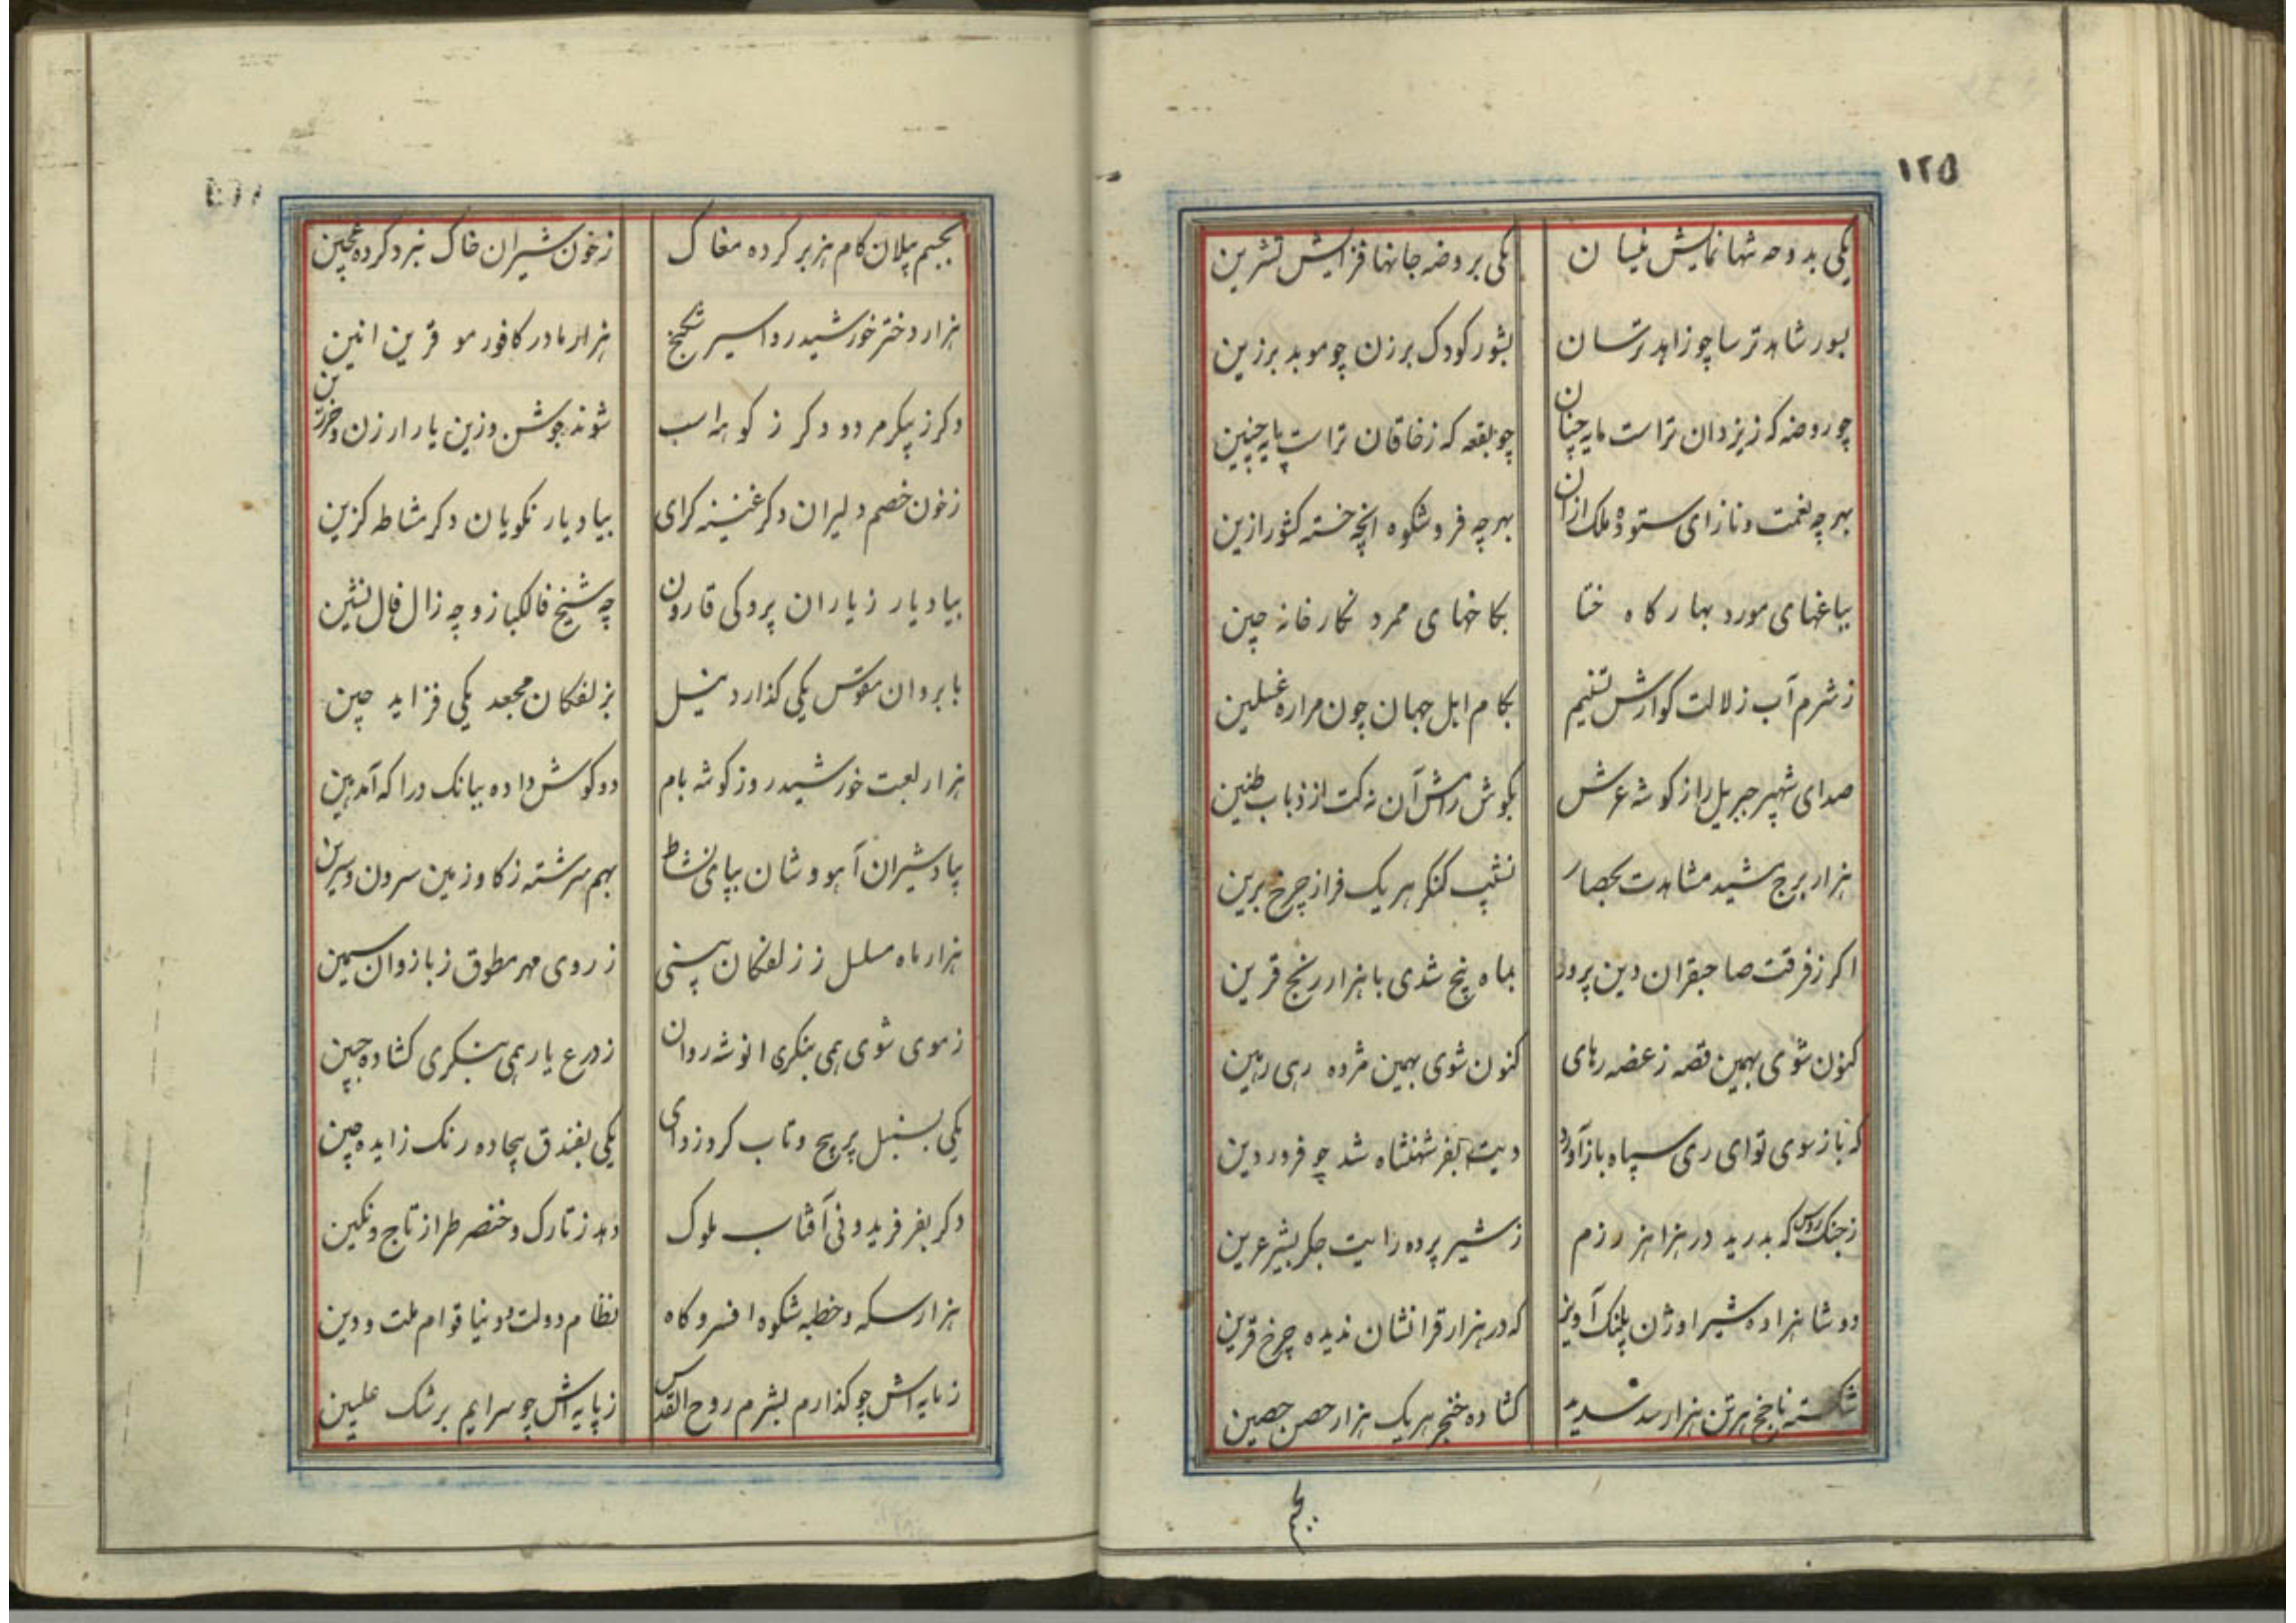 ۱۲۵
یکی بدوحه شها نمایش نیسان یکی بروضه جانها فزایش تشرین
بسور شاهد ترسا چو زاهد ترسان بشور کودک برزن چو موبد برزین
چو روضه که ز یزدان تراست مایه چنان چو بقعه که ز خاقان تراست پایه چنین
بهر چه نعمت و ناز ای ستوده ملک ازان بهر چه فر و شکوه انچه خسته کشور ازین
بباغهای مورد بهارکاه ختا بکاخهای ممرد نکارخانه چین
ز شرم آب زلالت کوارش تسنیم بکام اهل جهان چون مراره غسلین
صدای شهپر جبریل را ز کوشه عرش بکوش رامش آن نه کت از ذباب طنین
هزار برج مشید مشاهدت بحصار نشیب کنکر هر یک فراز چرخ برین
اکر ز فرقت صاحبقران دین پرور بماه پنج شدی با هزار رنج قرین
کنون شوی بهمین قصه ز غصه رهای کنون شوی بهمین مژده رهی رهین
که باز سوی تو ای ری سپاه باز آورد دیت بفر شهنشاه شد چو فروردین
ز جنک روس که بدرید در هزاهز رزم ز شیر پرده رایت جکر بشیر عرین
دو شاهزاده شیر اوژن پلنک آویز که در هزار قرانشان ندیده چرخ قرین
شکسته ناچخ هر تن هزار سد سدید کشاده خنجر هر یک هزار حصن حصین
بجیم
بجیم پیلان کام هزبر کرده مغاک ز خون شیران خاک نبرد کرده عجین
هزار دختر خورشید رو اسیر شکنج هزار مادر کافور مو قرین انین
دکر ز پیکر مردو دکر ز کوهه اسب شوند جوشن وزین یار ارزن و خرزین
ز خون خصم دلیران دکر غنینه کرای بیاد یار نکویان دکر مشاطه کزین
بیاد یار ز یاران پرو کی قارون چه شیخ فالکیاز و چه زال فال نشین
بابروان مقوس یکی کذارد نیل بزلفکان مجعد یکی فزاید چین
هزار لعبت خورشید رو ز کوشه بام دو کوش داده ببانک درا که آمد هین
بیاد شیران آهووشان بپای نشاط بهم سرشته ز کاو زمین سرون و سرین
هزار ماه مسلسل ز زلفکان بینی ز روی مهر مطوق ز بازوان سیمین
ز موی شوی همی بنکری انوشه روان ز درع یار همی بنکری کشاده جبین
یکی بسنبل پر پیچ و تاب کرد زدای یکی بفندق بیجاده رنک زایده چین
دکر بفر فریدونی آفتاب ملوک دهد ز تارک و خنصر طراز تاج و نکین
هزار سکه و خطبه شکوه افسر و کاه نظام دولت و دنیا قوام ملت و دین
ز مایه اش چو کذارم بشرم روح القدس ز پایه اش چو سرایم برشک علیین